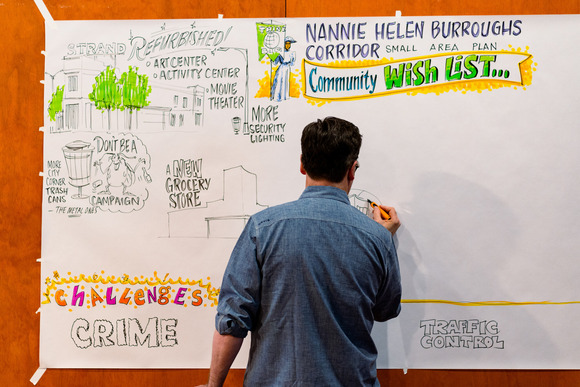 STRAND
REFURBISHED!
• ART CENTER
• ACTIVITY CENTER
• MOVIE
THEATER
MORE
SECURITY
LIGHTING
NANNIE HELEN BURROUGHS
CORRIDOR SMALL AREA PLAN
Community WISH LIST...
MORE
CITY
CORNER
TRASH
CANS
- THE METAL ONES
DON'T BE A
CAMPAIGN
A NEW
GROCERY
STORE
CHALLENGES
CRIME
TRAFFIC
CONTROL